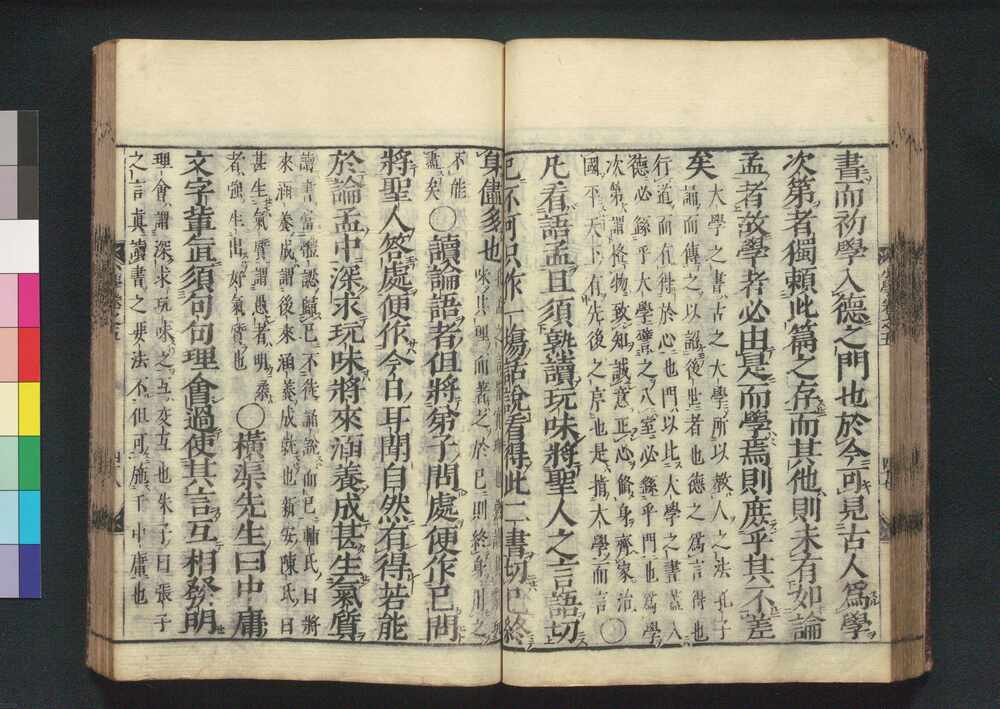 書而初學入德之門也於今可見古人爲學
次第者獨賴此篇之存而其他則未有如論
孟者故學者必由是而學焉則庶乎其不差
矣
大學之書古之大學所以教人之法孔子
誦而傳之以詔後世者也德之爲言得也
行道而有得於心也門以比大學之書蓋入
德必繇乎大學譬之入室必繇乎門也爲學
次第謂格物致知誠意正心脩身齊家治
國平天下有先後之序也是指大學而言
○
凡看語孟且須熟讀玩味將聖人之言語切
己不可只作一塲話說看得此二書切己終
身儘多也
味其理而著之於己則終身用之
不能
盡矣
○讀論語者但將弟子問處便作己問
將聖人答處便作今日耳聞自然有得若能
於論孟中深求玩味將來涵養成甚生氣質
讀書當體認歸己不徒誦說而已輔氏曰將
來涵養成謂後來涵養成就也新安陳氏曰
甚生氣質謂愚者明柔
者強生出好氣質也
○橫渠先生曰中庸
文字輩直須句句理會過使其言互相發明
理會謂深求玩味之互交互也朱子曰張子
之言真讀書之要法不但可施于中庸也